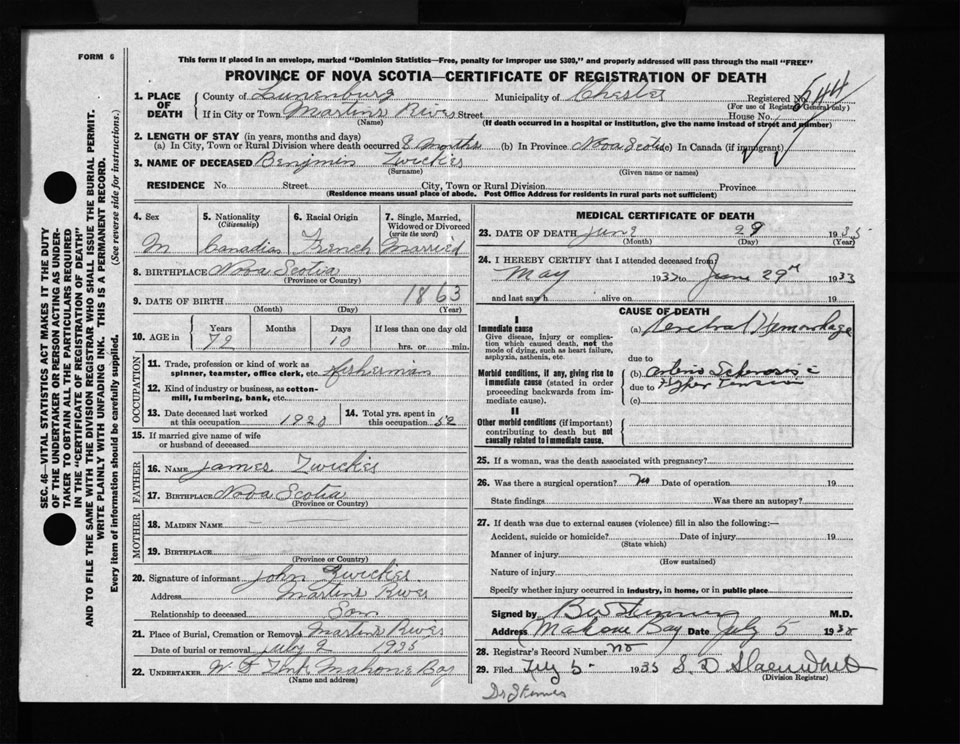 FORM 6
This form if placed in an envelope, marked "Dominion Statistics—Free, penalty for improper use $300," and properly addressed will pass through the mail "FREE"
PROVINCE OF NOVA SCOTIA—CERTIFICATE OF REGISTRATION OF DEATH
1. PLACE OF DEATH
County of Lunenburg Municipality of Chester Registered No. 544
(For use of Registrar General only)
If in City or Town Martins River Street House No.
(Name) (If death occurred in a hospital or institution, give the name instead of street and number)
2. LENGTH OF STAY (in years, months and days)
(a) In City, Town or Rural Division where death occurred 8 months (b) In Province Nova Scotia (c) In Canada (if immigrant)
3. NAME OF DECEASED Benjmin Zwicker
(Surname) (Given name or names)
RESIDENCE No. Street City, Town or Rural Division Province
(Residence means usual place of abode. Post Office Address for residents in rural parts not sufficient)
4. Sex
M
5. Nationality
(Citizenship)
Canadian
6. Racial Origin
French
7. Single, Married, Widowed or Divorced
(write the word)
Married
8. BIRTHPLACE Nova Scotia
(Province or Country)
9. DATE OF BIRTH 1863
(Month) (Day) (Year)
10. AGE in
Years Months Days If less than one day old
72 10 hrs. or min.
OCCUPATION
11. Trade, profession or kind of work as
spinner, teamster, office clerk, etc. fisherman
12. Kind of industry or business, as cotton-
mill, lumbering, bank, etc.
13. Date deceased last worked
at this occupation 1920
14. Total yrs. spent in
this occupation 52
15. If married give name of wife
or husband of deceased
FATHER
16. NAME James Zwicker
17. BIRTHPLACE Nova Scotia
(Province or Country)
MOTHER
18. MAIDEN NAME
19. BIRTHPLACE
(Province or Country)
20. Signature of informant John Zwicker
Address Martins River
Relationship to deceased Son
21. Place of Burial, Cremation or Removal Martins River
Date of burial or removal July 2 1935
22. UNDERTAKER Mahone Bay
(Name and address)
MEDICAL CERTIFICATE OF DEATH
23. DATE OF DEATH June 29 1935
(Month) (Day) (Year)
24. I HEREBY CERTIFY that I attended deceased from
May 1935 to June 29th 1935
and last saw h alive on 19
CAUSE OF DEATH
I
Immediate cause
Give disease, injury or complica-
tion which caused death, not the
mode of dying, such as heart failure,
asphyxia, asthenia, etc.
(a) Cerebral Hemorrhage
due to
Morbid conditions, if any, giving rise to
immediate cause (stated in order
proceeding backwards from im-
mediate cause).
(b)
due to
(c)
II
Other morbid conditions (if important)
contributing to death but not
causally related to immediate cause.
25. If a woman, was the death associated with pregnancy?
26. Was there a surgical operation? no Date of operation 19
State findings Was there an autopsy?
27. If death was due to external causes (violence) fill in also the following:—
Accident, suicide or homicide? Date of injury 19
(State which)
Manner of injury
(How sustained)
Nature of injury
Specify whether injury occurred in industry, in home, or in public place
Signed by M.D.
Address Mahone Bay Date July 5 1935
28. Registrar's Record Number
29. Filed July 5 1935
(Division Registrar)
SEC. 46—VITAL STATISTICS ACT MAKES IT THE DUTY
OF THE UNDERTAKER OR PERSON ACTING AS UNDER-
TAKER TO OBTAIN ALL THE PARTICULARS REQUIRED
IN THE "CERTIFICATE OF REGISTRATION OF DEATH"
AND TO FILE THE SAME WITH THE DIVISION REGISTRAR WHO SHALL ISSUE THE BURIAL PERMIT.
WRITE PLAINLY WITH UNFADING INK. THIS IS A PERMANENT RECORD.
Every item of information should be carefully supplied. (See reverse side for instructions.)